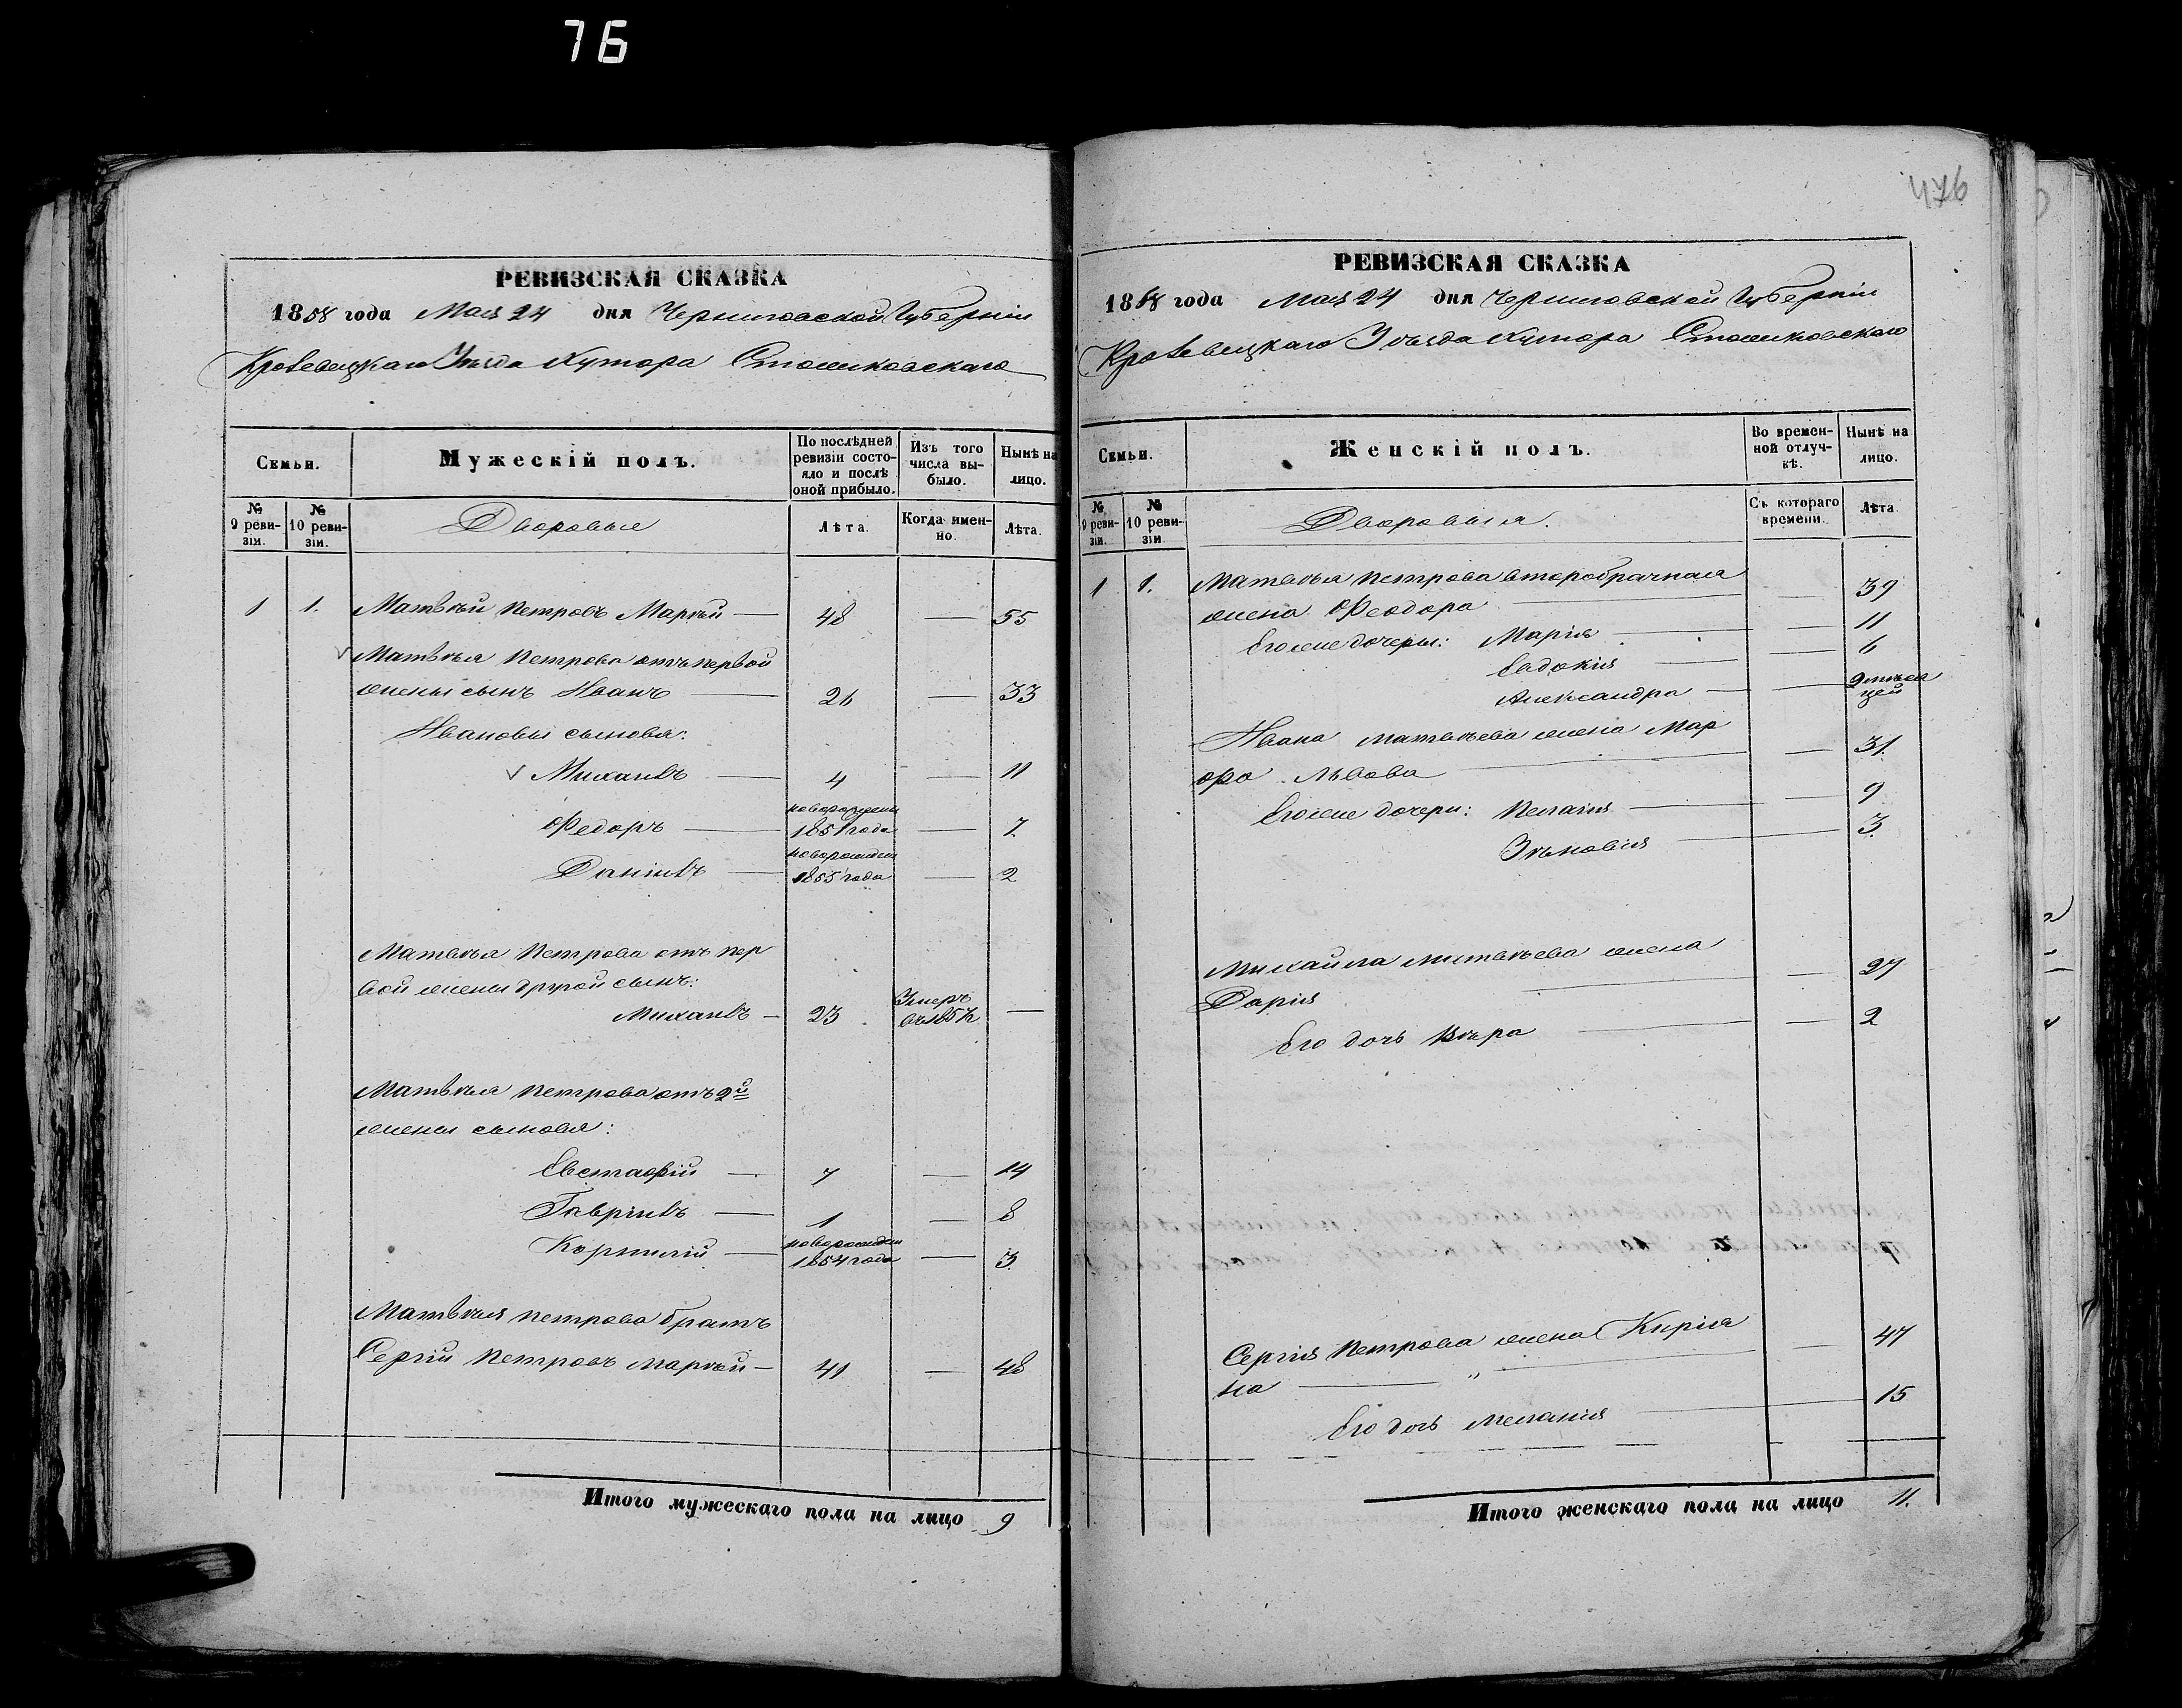 76
РЕВИЗСКАЯ СКАЗКА
1858 года Мая 24 дня Черниговской Губерніи
Кролевецкаго Уѣзда Хутора
Семьи.
Мужескій полъ.
По послѣдней ревизіи состояло и послѣ оной прибыло.
Изъ того числа выбыло.
Нынѣ на лицо.
№ 9 ревизіи.
№ 10 ревизіи.
Дворовые
Лѣта.
Когда именно.
Лѣта.
1 1. Матвѣй Петровъ — 48 — 55
Матвѣя Петрова отъ первой
жены сынъ Иванъ — 26 — 33
Ивановы сыновья:
Михаилъ — 4 — 11
новорожденъ
Федоръ — 1851 года — 7.
новорожден
Даніилъ — 1855 года — 2
Матвѣя Петрова отъ пер
вой жены другой сынъ:
Умеръ
Михаилъ — 23 въ —
Матвѣя Петрова отъ 2й
жены сыновья:
Евстафій — 7 — 14
Гавріилъ — 1 — 8
новорожден
Корнилій — 1854 года — 3.
Матвѣя Петрова братъ
Сергій Петровъ — 41 — 48
Итого мужескаго пола на лицо 9
476
РЕВИЗСКАЯ СКАЗКА
1858 года Мая 24 дня Черниговской Губерніи
Кролевецкаго Уѣзда Хутора
Семьи.
Женскій полъ.
Во временной отлучкѣ.
Нынѣ на лицо.
№ 9 ревизіи.
№ 10 ревизіи
Дворовыя.
Съ котораго времени.
Лѣта.
1 1. Матвѣя Петрова второбрачная
жена Феодора — — 39
Его же дочери: Марія — — 11
Евдокія — — 6
Александра — — 9 мѣся
цей
Ивана Матвѣева жена Мар
фа Львова — — 31.
Его же дочери: Пелагія — — 9
Зѣновія — — 3.
Михаила Матвѣева жена
Дарія — — 27
Его дочь Вѣра — — 2
Сергія Петрова жена Кирія
на — „ — — 47
Его дочь Меланія — 15
Итого женскаго пола на лицо 11.